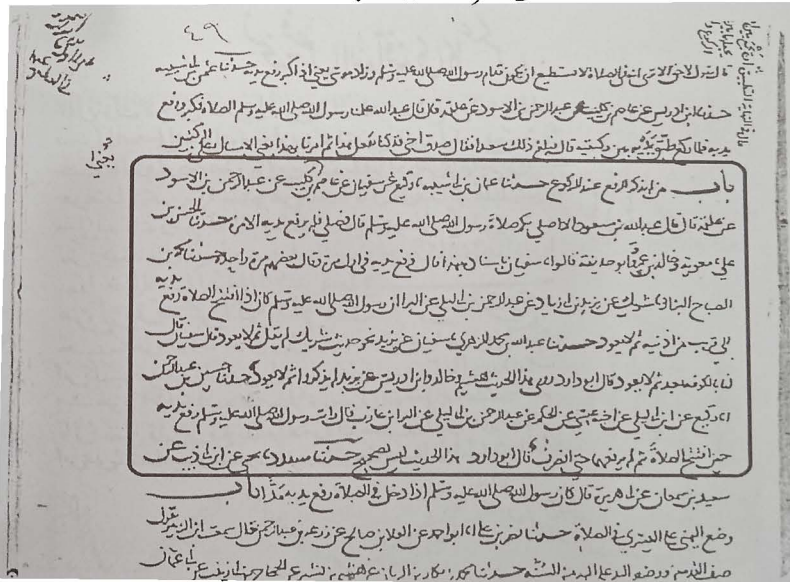 ٤٩
حدثنا عثمن بن ابي شيبة
حدثنا ابن ادريس عن عاصم بن كليب عن عبدالرحمن بن الاسود عن علقمة قال قال عبدالله علمنا رسول الله صلى الله عليه وسلم الصلاة فكبر ورفع
يديه فلما ركع طبق يديه بين ركبتيه قال فبلغ ذلك سعدا فقال صدق اخي قد كنا نفعل هذا ثم امرنا بهذا يعني الامساك على الركبتين
باب من لم يذكر الرفع عند الركوع حدثنا عثمان بن ابي شيبة، وكيع عن سفيان عن عاصم بن كليب عن عبدالرحمن بن الاسود
عن علقمة قال قال عبدالله بن مسعود الا اصلي بكم صلاة رسول الله صلى الله عليه وسلم قال فصلى فلم يرفع يديه الا مرة حدثنا الحسن بن
علي، معوية وخالد بن عمرو وابو حذيفة قالوا، سفيان باسناده بهذا قال فرفع يديه في اول مرة وقال بعضهم مرة واحدة حدثنا محمد بن
الصباح البزاز، شريك عن يزيد بن ابي زياد عن عبدالرحمن بن ابي ليلى عن البراء ان رسول الله صلى الله عليه وسلم كان اذا افتتح الصلاة رفع يديه
الى قريب من اذنيه ثم لا يعود حدثنا عبدالله بن محمد الزهري، سفيان عن يزيد نحو حديث شريك لم يقل ثم لا يعود قال سفيان قال
لنا بالكوفة بعد ثم لا يعود قال ابو داود روى هذا الحديث هشيم وخالد وابن ادريس عن يزيد لم يذكروا ثم لا يعود حدثنا حسين بن عبدالرحمن
، وكيع عن ابن ابي ليلى عن اخيه عيسى عن الحكم عن عبدالرحمن بن ابي ليلى عن البراء بن عازب قال رايت رسول الله صلى الله عليه وسلم رفع يديه
حين افتتح الصلاة ثم لم يرفعهما حتى انصرف قال ابو داود هذا الحديث ليس بصحيح حدثنا مسدد، يحيى عن ابن ابي ذيب عن
سعيد بن سمعان عن ابي هريرة قال كان رسول الله صلى الله عليه وسلم اذا دخل في الصلاة رفع يديه مدا باب
وضع اليمنى على اليسرى في الصلاة حدثنا نصر بن علي، ابو احمد عن العلاء بن صالح عن زرعة بن عبدالرحمن قال سمعت ابن الزبير يقول
صف القدمين ووضع اليد على اليد من السنة حدثنا محمد بن بكار بن الريان عن هشيم بن بشير عن الحجاج بن ابي زينب عن ابي عثمان